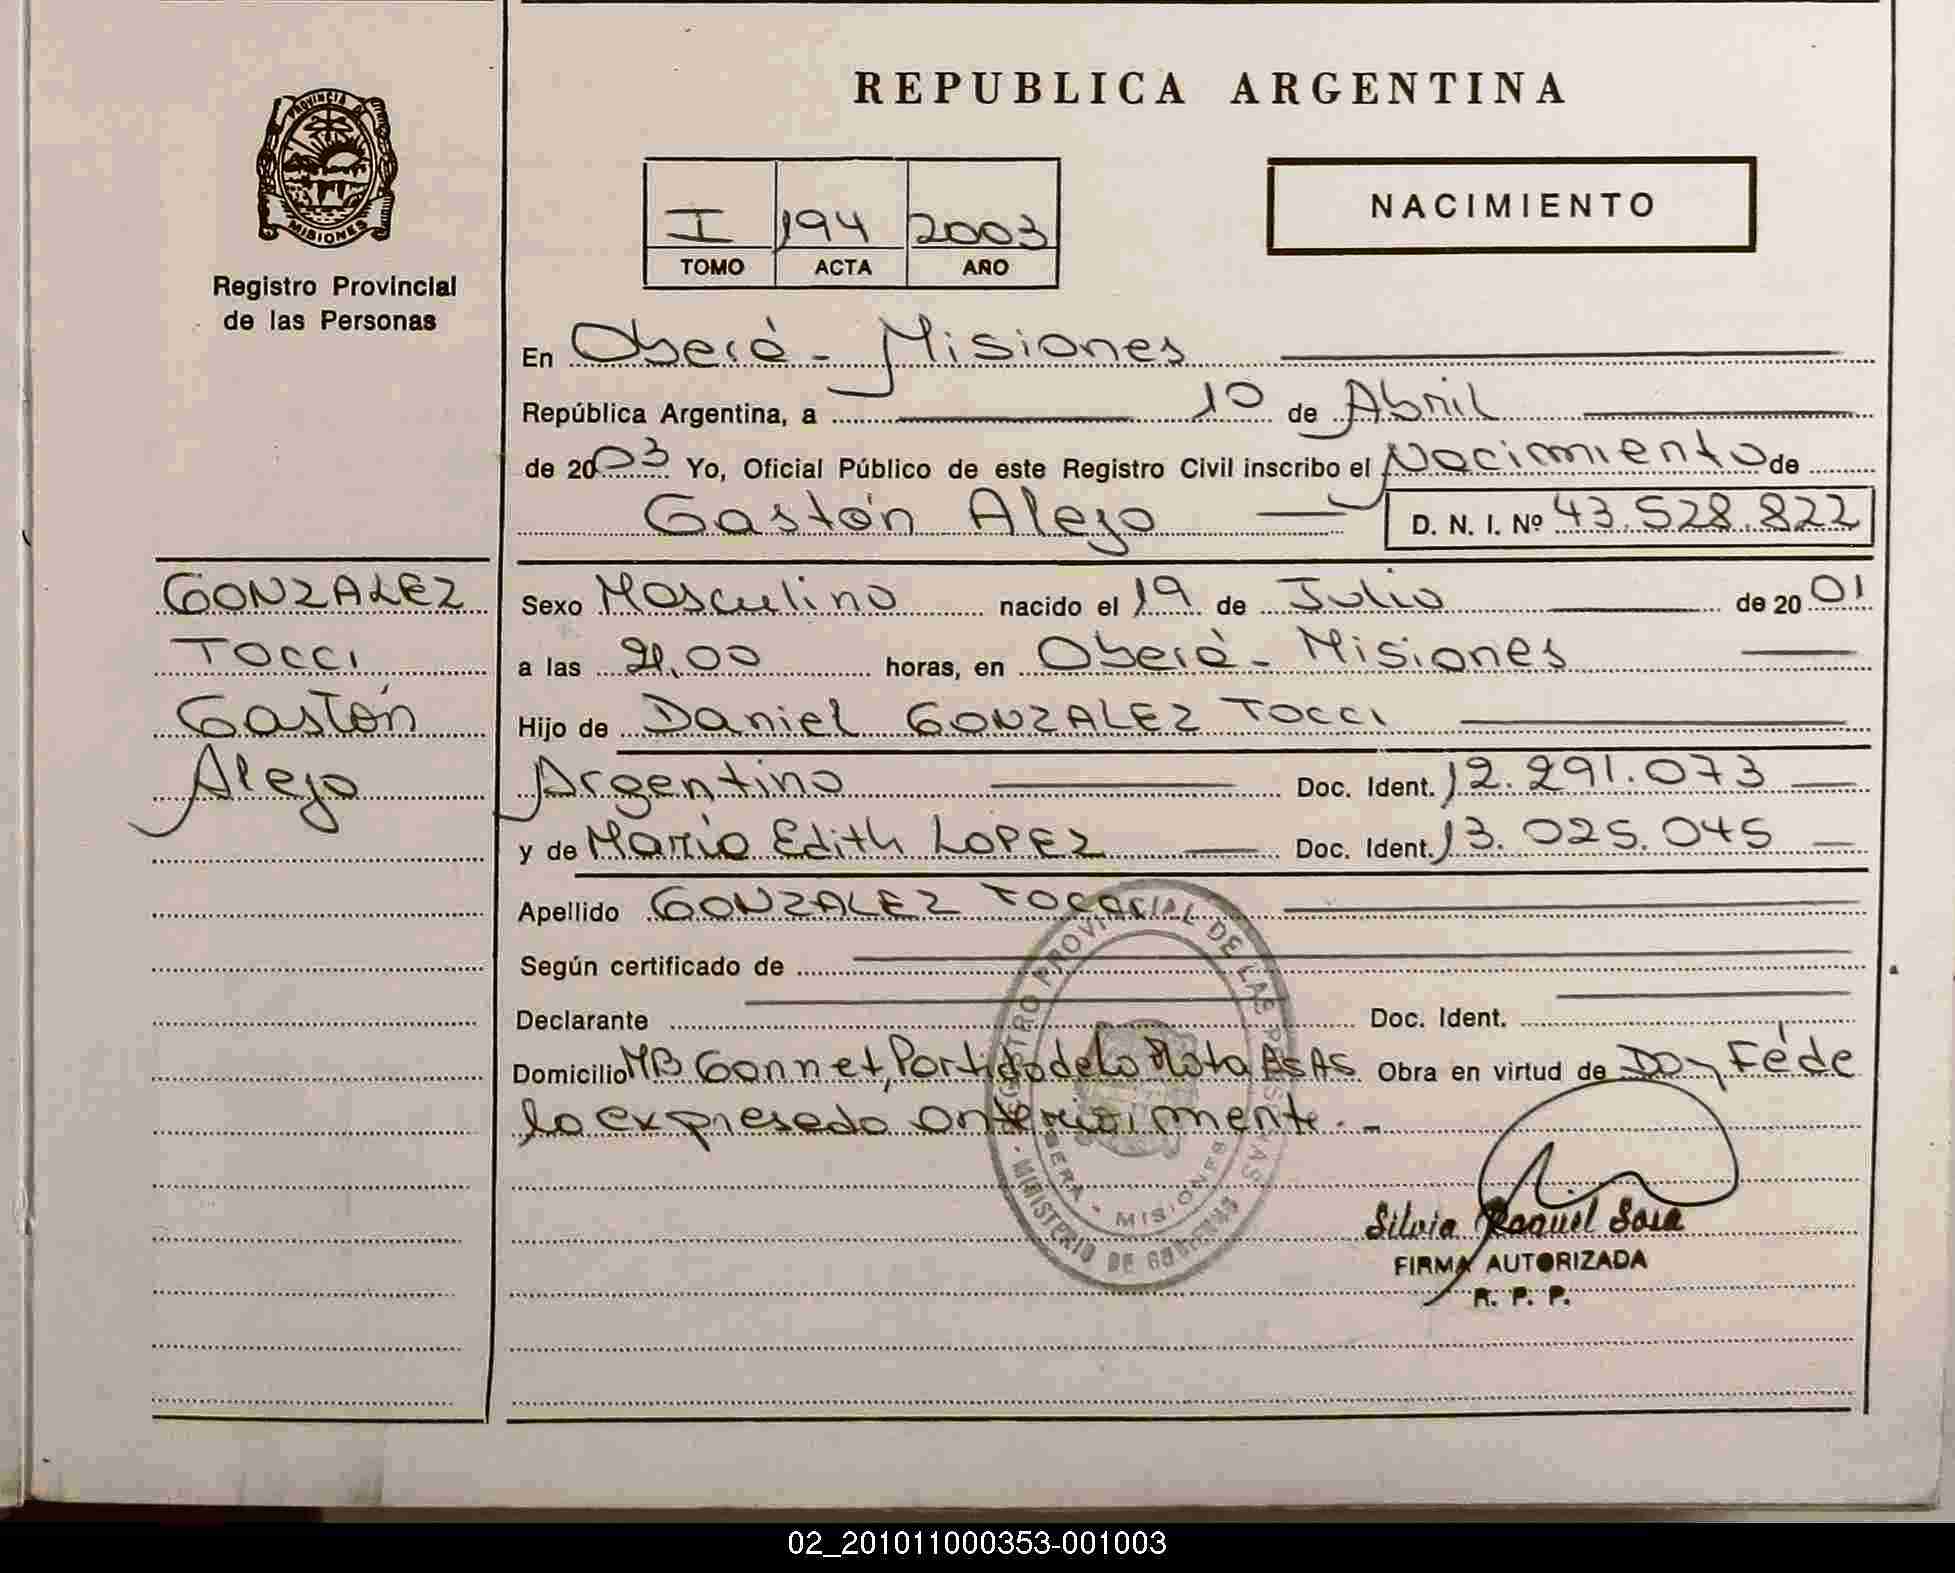 PROVINCIA DE
MISIONES
Registro Provincial
de las Personas
GONZALEZ
TOCCI
Gastón
Alejo
REPUBLICA ARGENTINA
I 194 2003
TOMO ACTA AÑO
NACIMIENTO
En Oberá - Misiones
República Argentina, a 10 de Abril
de 2003 Yo, Oficial Público de este Registro Civil inscribo el Nacimiento de
Gastón Alejo D. N. I. Nº 43.528.822
Sexo Masculino nacido el 19 de Julio de 2001
a las 21,00 horas, en Oberá - Misiones
Hijo de Daniel GONZALEZ TOCCI
Argentino Doc. Ident. 12.291.073
y de María Edith LOPEZ Doc. Ident. 13.025.045
Apellido GONZALEZ TOCCI
Según certificado de
Declarante Doc. Ident.
Domicilio MB Gonnet, Partido de La Plata BsAs Obra en virtud de Doy Fé de
lo expresado anteriormente.-
REGISTRO PROVINCIAL DE LAS PERSONAS
OBERA - MISIONES
MINISTERIO DE GOBIERNO
Silvia Raquel Sosa
FIRMA AUTORIZADA
R. P. P.
02_201011000353-001003